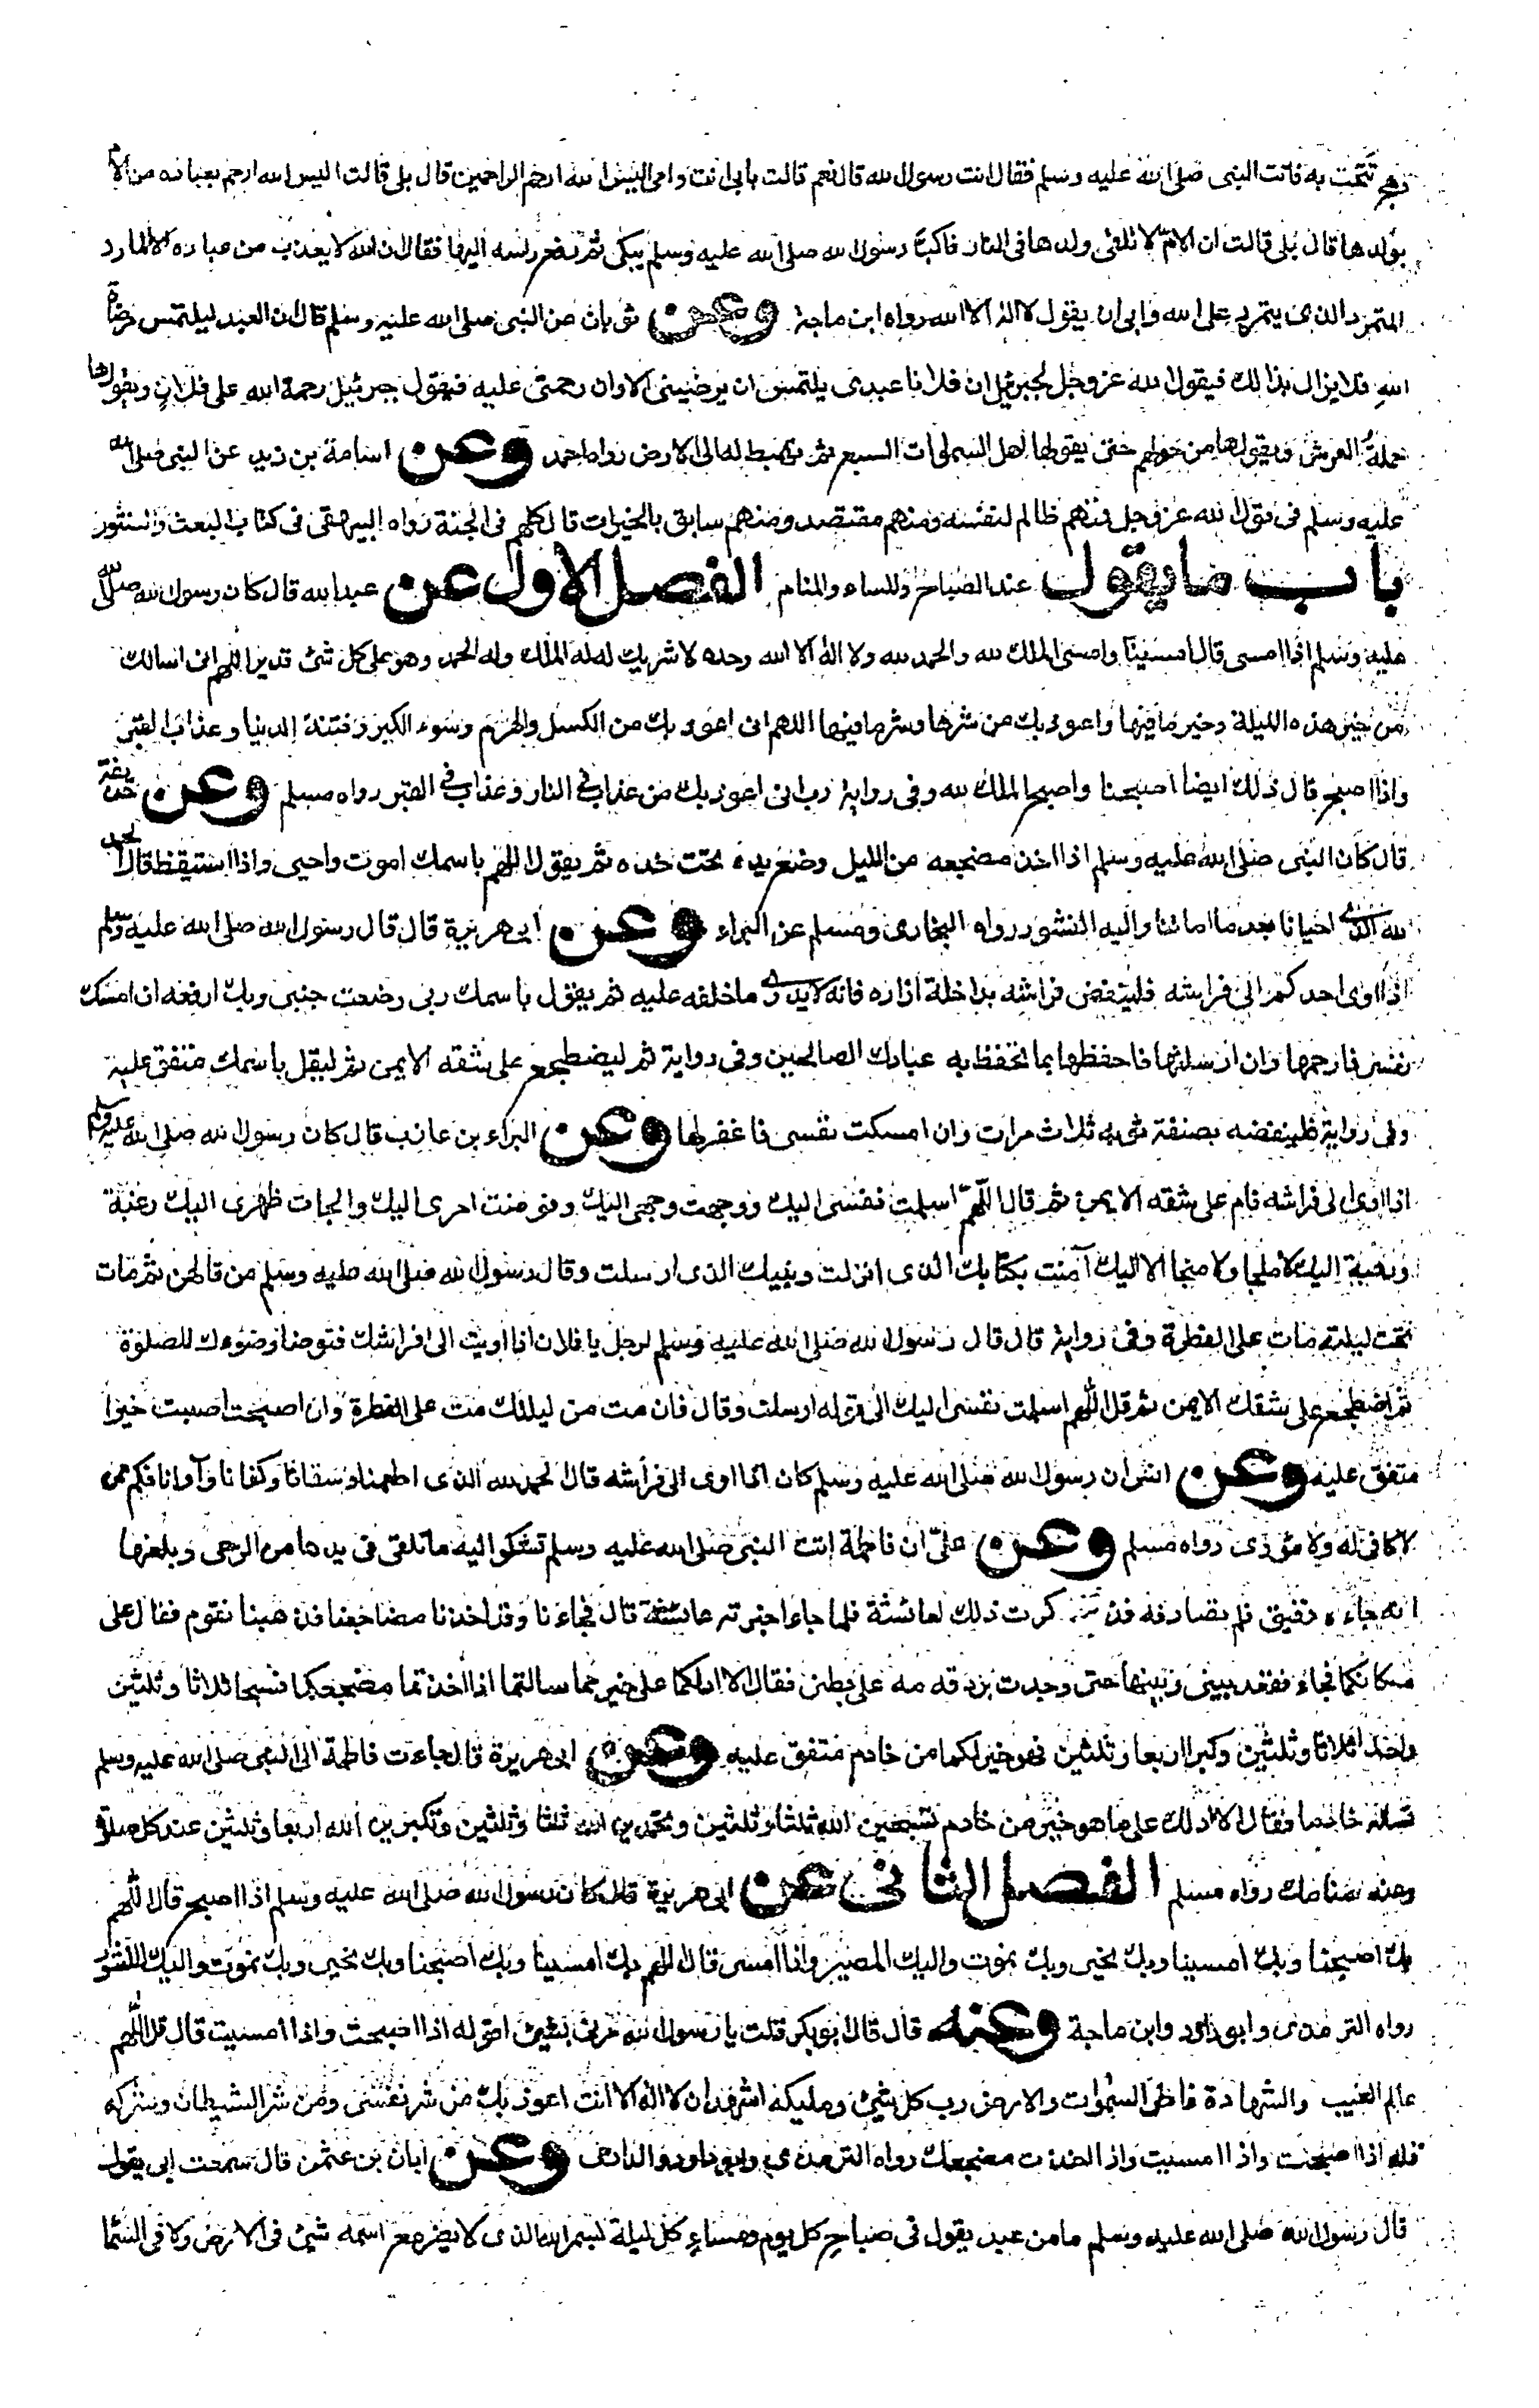 وهج تنحت به فاتت النبى صلى الله عليه وسلم فقال انت رسول الله قال نعم قالت بابى انت وامى اليس الله ارحم الراحمين قال بلى قالت اليس الله ارحم بعباده من الام
بولدها قال بلى قالت ان الام لا تلقى ولدها فى النار فاكب رسول الله صلى الله عليه وسلم يبكى ثم رفع رأسه اليها فقال ان الله لا يعذب من عباده الا المارد
المتمرد الذى يتمرد على الله وابى ان يقول لا اله الا الله رواه ابن ماجة وعن ثوبان عن النبى صلى الله عليه وسلم قال ان العبد ليلتمس مرضاة
الله فلا يزال بذالك فيقول الله عز وجل لجبرئيل ان فلانا عبدى يلتمس ان يرضينى الا وان رحمتى عليه فيقول جبرئيل رحمة الله على فلان ويقولها
حملة العرش ويقولها من حولهم حتى يقولها اهل السموات السبع ثم تهبط له الى الارض رواه احمد وعن اسامة بن زيد عن النبى صلى الله
عليه وسلم فى قول الله عز وجل فمنهم ظالم لنفسه ومنهم مقتصد ومنهم سابق بالخيرات قال كلهم فى الجنة رواه البيهقى فى كتاب البعث والنشور
باب ما يقول عند الصباح والمساء والمنام الفصل الاول عن عبد الله قال كان رسول الله صلى الله
عليه وسلم اذا امسى قال امسينا وامسى الملك لله والحمد لله ولا اله الا الله وحده لا شريك له له الملك وله الحمد وهو على كل شئ قدير اللهم انى اسالك
من خير هذه الليلة وخير ما فيها واعوذ بك من شرها وشر ما فيها اللهم انى اعوذ بك من الكسل والهرم وسوء الكبر وفتنة الدنيا وعذاب القبر
واذا اصبح قال ذلك ايضا اصبحنا واصبح الملك لله وفى رواية رب انى اعوذ بك من عذاب فى النار وعذاب فى القبر رواه مسلم وعن حذيفة
قال كان النبى صلى الله عليه وسلم اذا اخذ مضجعه من الليل وضع يده تحت خده ثم يقول اللهم باسمك اموت واحيى واذا استيقظ قال الحمد
لله الذى احيانا بعد ما اماتنا واليه النشور رواه البخارى ومسلم عن البراء وعن ابى هريرة قال قال رسول الله صلى الله عليه وسلم
اذا اوى احدكم الى فراشه فلينفض فراشه بداخلة ازاره فانه لا يدرى ما خلفه عليه ثم يقول باسمك ربى وضعت جنبى وبك ارفعه ان امسكت
نفسى فارحمها وان ارسلتها فاحفظها بما تحفظ به عبادك الصالحين وفى رواية ثم ليضطجع على شقه الايمن ثم ليقل باسمك متفق عليه
وفى رواية فلينفضه بصنفة ثوبه ثلاث مرات وان امسكت نفسى فاغفر لها وعن البراء بن عازب قال كان رسول الله صلى الله عليه وسلم
اذا اوى الى فراشه نام على شقه الايمن ثم قال اللهم اسلمت نفسى اليك ووجهت وجهى اليك وفوضت امرى اليك والجات ظهرى اليك رغبة
ورهبة اليك لا ملجا ولا منجا الا اليك آمنت بكتابك الذى انزلت وبنبيك الذى ارسلت وقال رسول الله صلى الله عليه وسلم من قالهن ثم مات
تحت ليلته مات على الفطرة وفى رواية قال قال رسول الله صلى الله عليه وسلم لرجل يا فلان اذا اويت الى فراشك فتوضا وضوءك للصلوة
ثم اضطجع على شقك الايمن ثم قل اللهم اسلمت نفسى اليك الى قوله ارسلت وقال فان مت من ليلتك مت على الفطرة وان اصبحت اصبت خيرا
متفق عليه وعن انس ان رسول الله صلى الله عليه وسلم كان اذا اوى الى فراشه قال الحمد لله الذى اطعمنا وسقانا وكفانا وآوانا فكم ممن
لا كافى له ولا مؤذى رواه مسلم وعن على ان فاطمة اتت النبى صلى الله عليه وسلم تشكو اليه ما تلقى فى يدها من الرحى وبلغها
انه جاءه رقيق فلم تصادفه فذكرت ذلك لعائشة فلما جاء اخبرته عائشة قال فجاءنا وقد اخذنا مضاجعنا فذهبنا نقوم فقال على
مكانكما فجاء فقعد بينى وبينها حتى وجدت برد قدمه على بطنى فقال الا ادلكما على خير مما سالتما اذا اخذتما مضجعكما فسبحا ثلاثا وثلثين
واحمدا ثلاثا وثلثين وكبرا اربعا وثلثين فهو خير لكما من خادم متفق عليه وعن ابى هريرة قال جاءت فاطمة الى النبى صلى الله عليه وسلم
تساله خادما فقال الا ادلك على ما هو خير من خادم تسبحين الله ثلثا وثلثين وتحمدين الله ثلثا وثلثين وتكبرين الله اربعا وثلثين عند كل صلوة
وعند منامك رواه مسلم الفصل الثانى عن ابى هريرة قال كان رسول الله صلى الله عليه وسلم اذا اصبح قال اللهم
بك اصبحنا وبك امسينا وبك نحيى وبك نموت واليك المصير واذا امسى قال اللهم بك امسينا وبك اصبحنا وبك نحيى وبك نموت واليك النشور
رواه الترمذى وابو داود وابن ماجة وعنه قال قال ابو بكر قلت يا رسول الله مرنى بشئ اقوله اذا اصبحت واذا امسيت قال قل اللهم
عالم الغيب والشهادة فاطر السموات والارض رب كل شئ ومليكه اشهد ان لا اله الا انت اعوذ بك من شر نفسى ومن شر الشيطان وشركه
قله اذا اصبحت واذا امسيت واذا اخذت مضجعك رواه الترمذى وابو داود والدارمى وعن ابان بن عثمن قال سمعت ابى يقول
قال رسول الله صلى الله عليه وسلم ما من عبد يقول فى صباح كل يوم ومساء كل ليلة بسم الله الذى لا يضر مع اسمه شئ فى الارض ولا فى السما